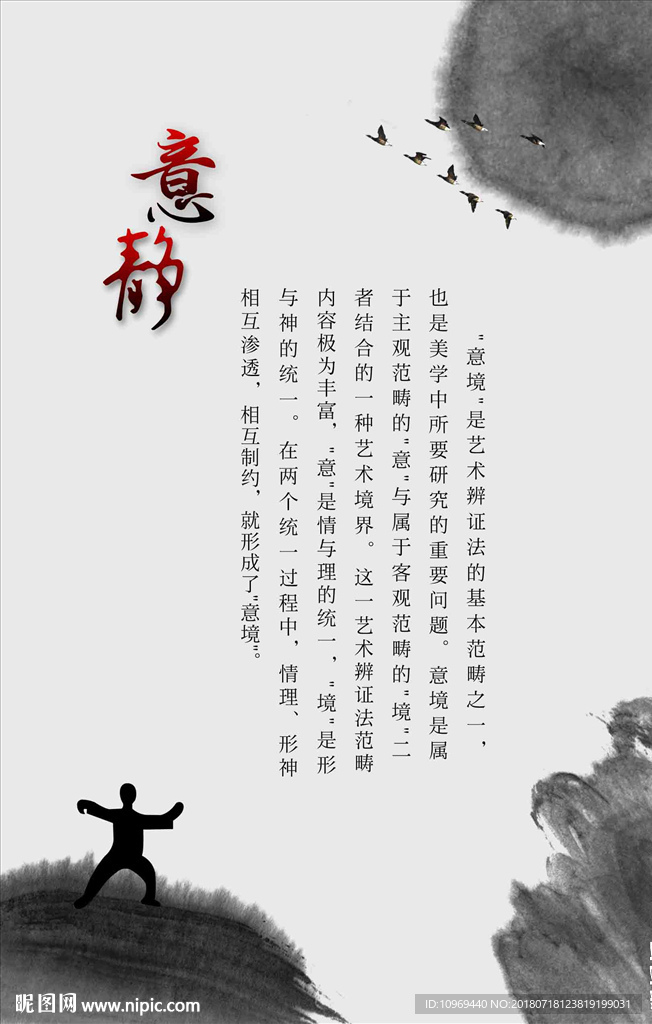 意静
"意境"是艺术辨证法的基本范畴之一，
也是美学中所要研究的重要问题。意境是属
于主观范畴的"意"与属于客观范畴的"境"二
者结合的一种艺术境界。这一艺术辨证法范畴
内容极为丰富，"意"是情与理的统一，"境"是形
与神的统一。在两个统一过程中，情理、形神
相互渗透，相互制约，就形成了"意境"。
昵图网 www.nipic.com
ID:10969440 NO:20180718123819199031